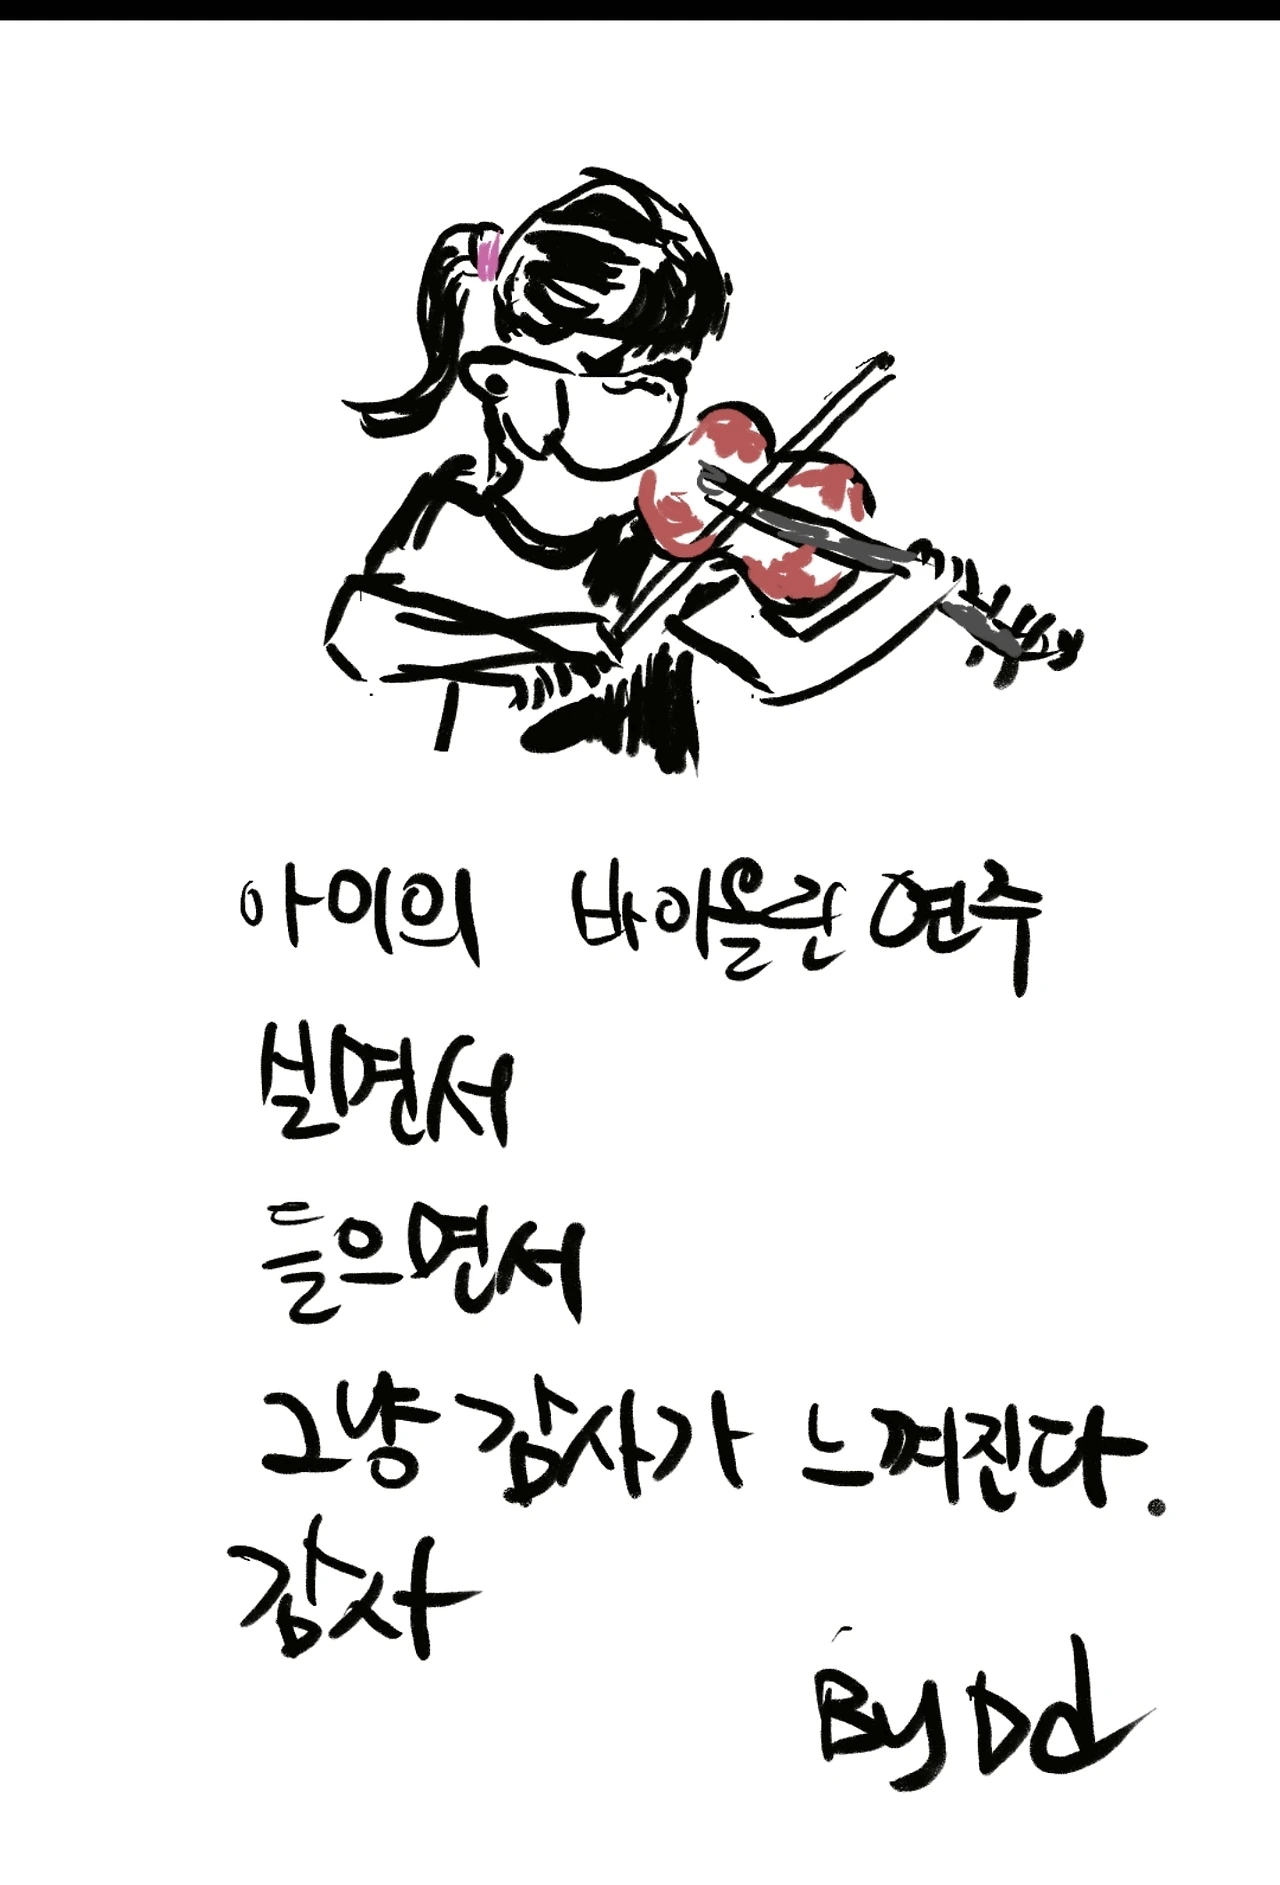 아이의 바이올린 연주
보면서
들으면서
그냥 감사가 느껴진다.
감사
By Dd